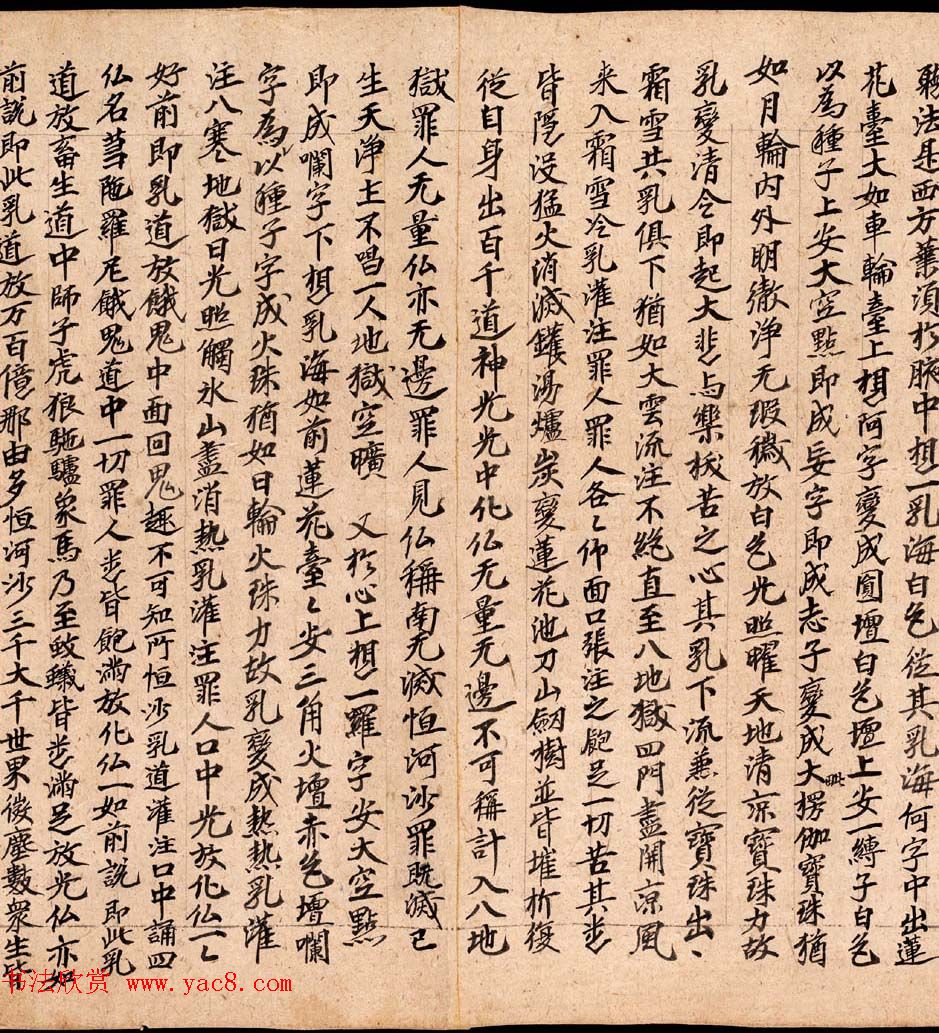 法是西方業須於腋中想一乳海白色從其乳海何字中出蓮
花臺大如車輪臺上想阿字變成圓壇白色壇上安一縛子白色
以為種子上安大空點即成鋄字即成志子變成大楞伽寶珠猶
如月輪內外朋徹淨无瑕穢放白色光照曜天地清凉寶珠力故
乳變清令即起大悲与樂拔苦之心其乳下流兼從寶珠出〻
霜雪共乳俱下猶如大雲流注不絶直至八地獄四門盡開涼風
来入霜雪冷乳灌注罪人罪人各〻仰面口張注之飽足一切苦其悉
皆隱没猛火消滅鑊湯爐炭變蓮花池刀山劒樹並皆摧折復
從自身出百千道神光光中化仏无量无邊不可稱計入八地
獄罪人无量仏亦无邊罪人見仏稱南无滅恒河沙罪既滅已
生天淨土不唱一人地獄空曠 又於心上想一羅字安大空點
即成囒字下想乳海如前蓮花臺〻安三角火壇赤色壇囒
字為以種子字成火珠猶如日輪火珠力故乳變成熱熱乳灌
注八寒地獄日光照觸氷山盡消熱乳灌注罪人口中光放化仏一〻
好前即乳道放餓鬼中面回鬼趣不可知所恒沙乳道灌注口中誦四
仏名䒭陁羅尼餓鬼道中一切罪人悉皆飽滿放化仏一如前說 即此乳
道放畜生道中師子虎狼駞驢象馬乃至蚊蟻皆悉滿足放光仏亦如
前說即此乳道放万百億那由多恒河沙三千大千世界微塵數衆生皆
书法欣赏 www.yac8.com